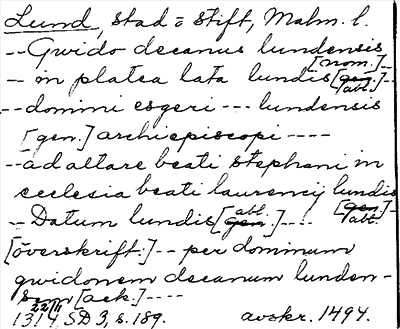 Lund, stad o stift, Malm. l.
-- Gwido decanus lundensis
[nom.]--
-- in platea lata lundis [gen. abl.]--
-- domini esgeri --- lundensis
[gen.] archiepiscopi ----
-- ad altare beati stephani in
ecclesia beati laurencij lundis
[gen. abl.]-
-- Datum lundis [gen. abl.] ----
[överskrift.] -- per dominum
gwidonem decanum lunden-
sem [ack.] ----
1314 22/11 SD 3, s. 189. avskr. 1494.